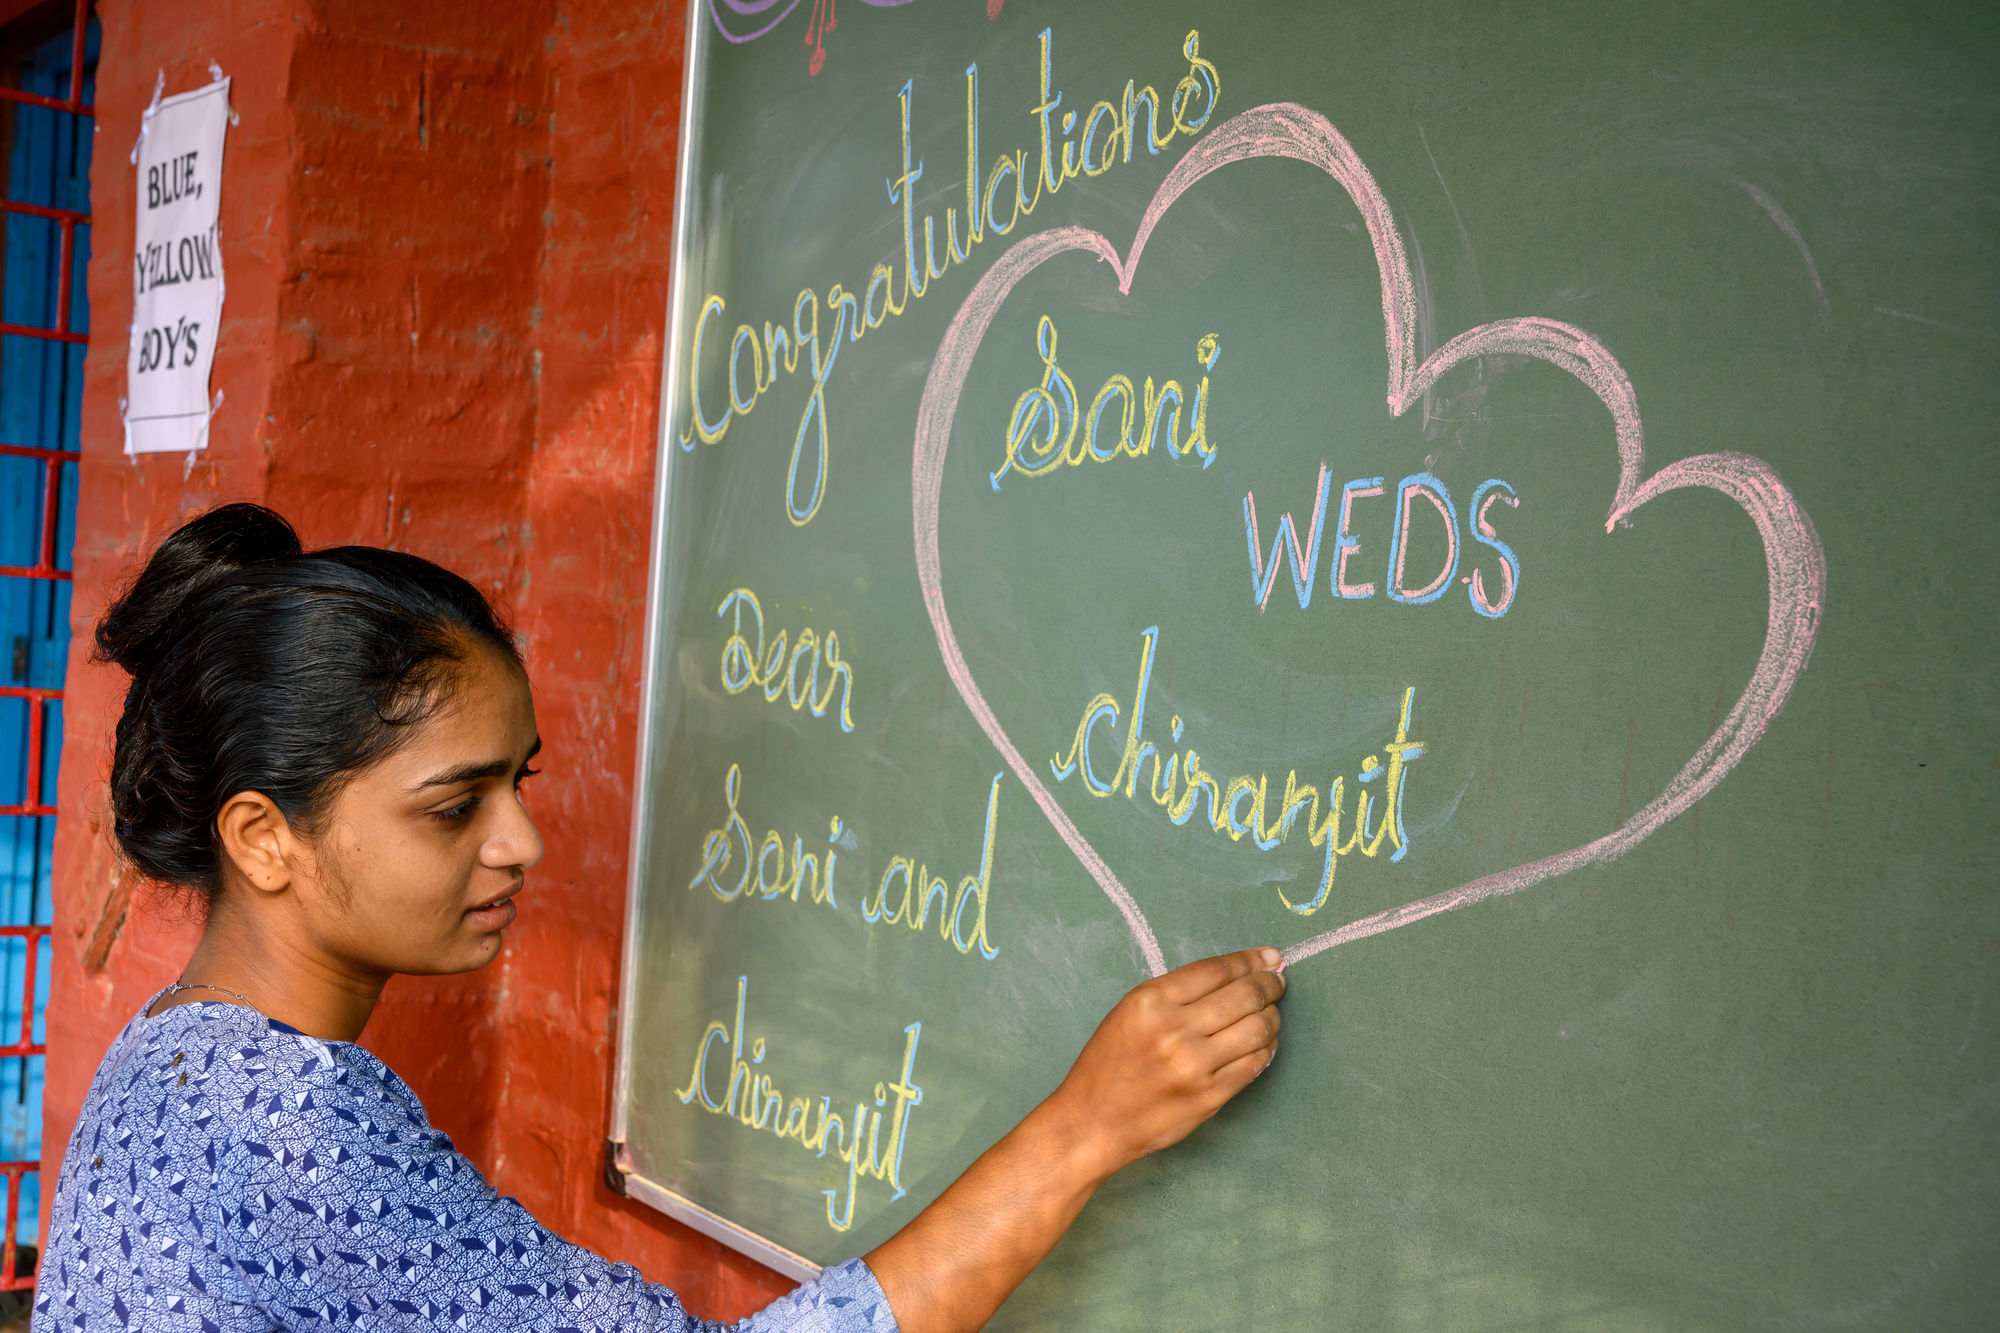 BLUE,
YELLOW
BOY'S
Congratulations
Dear
Sani and
Chiranjit
Sani
WEDS
Chiranjit